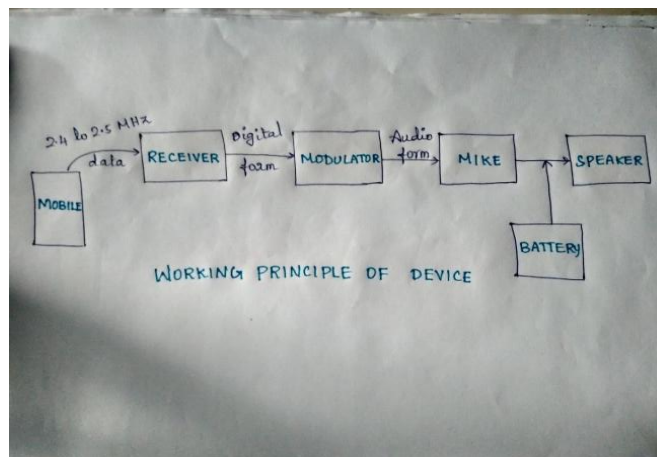 2.4 to 2.5 MHz
data
MOBILE
RECEIVER
Digital
form
MODULATOR
Audio
form
MIKE
SPEAKER
BATTERY
WORKING PRINCIPLE OF DEVICE